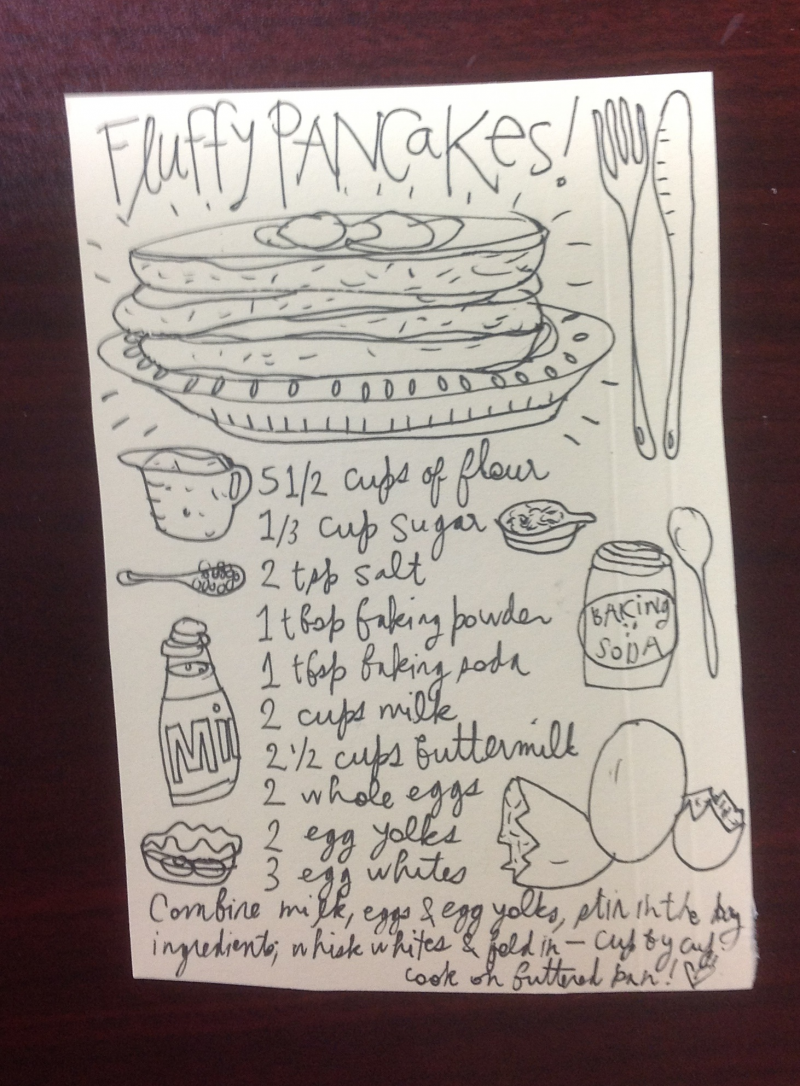 Fluffy PANCaKes!
5 1/2 cups of flour
1/3 cup sugar
2 tsp salt
1 tbsp baking powder
BAKING
SODA
1 tbsp baking soda
2 cups milk
Mi
2 1/2 cups buttermilk
2 whole eggs
2 egg yolks
3 egg whites
Combine milk, eggs & egg yolks, stir in the dry
ingredients; whisk whites & fold in — cup by cup.
cook on buttered pan!